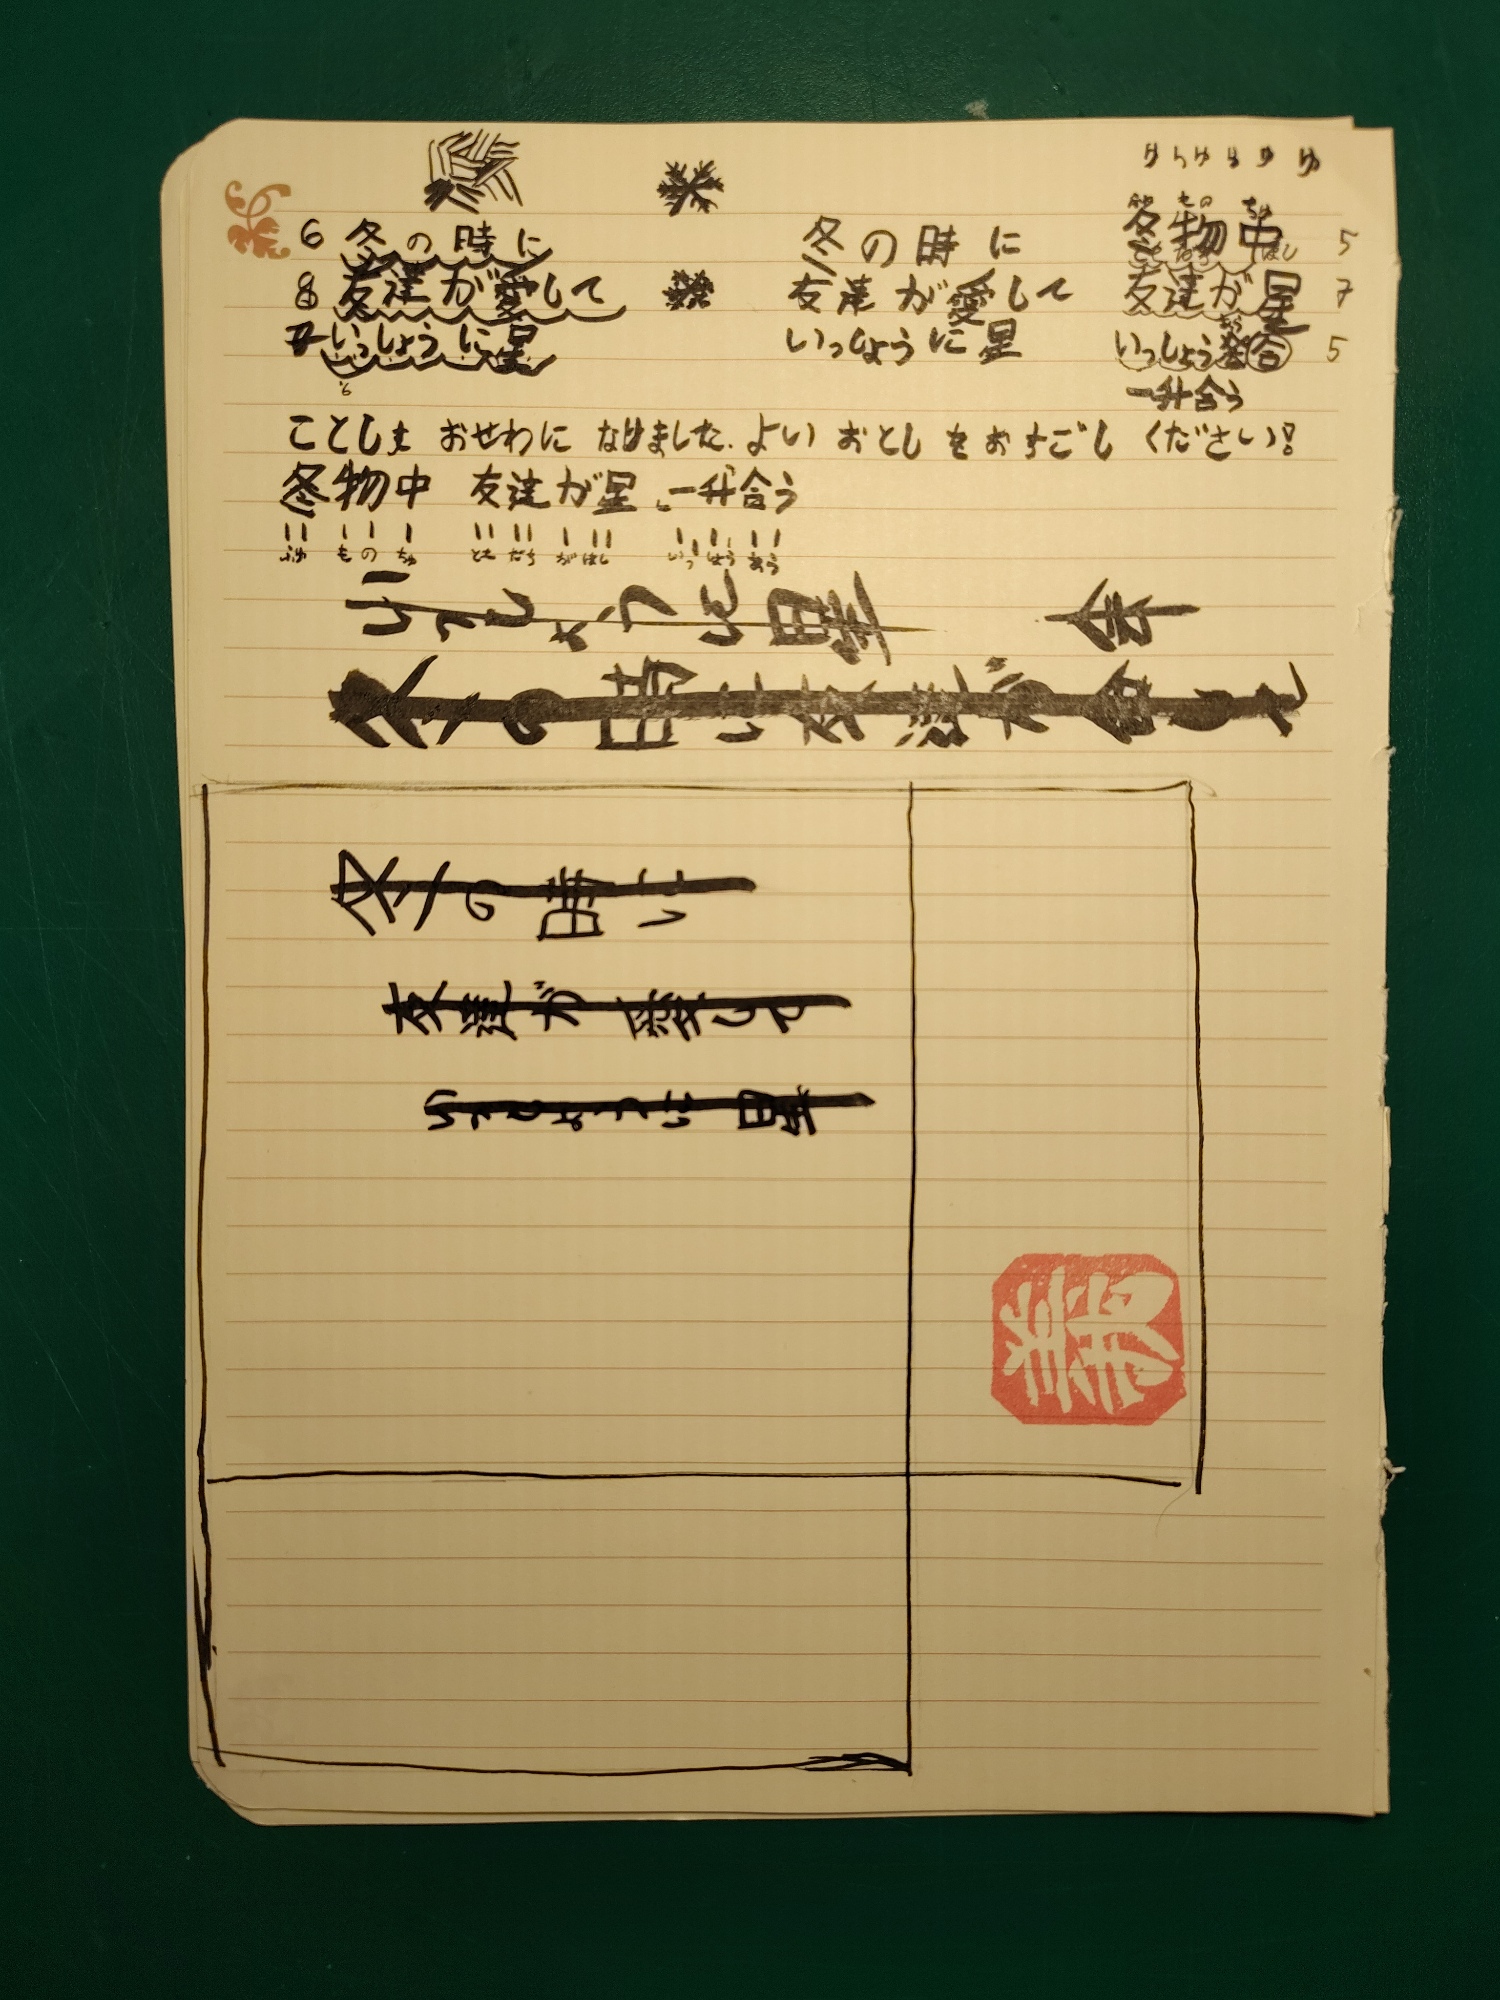 ゆ ら ゆ ゆ ゆ ゆ
6 冬の時に
8 友達が愛して
7 いっしょうに星
冬の時に
友達が愛して
いっしょうに星
ふゆ もの ちゅ
冬物中 5
友達が星 7
いっしょう 合 5
一升合う
ことしも おせわに なりました. よい おとし を おすごし ください!
冬物中 友達が星 一升合う
ふゆ も の ちゅ とも だち が ほし いっ しょう あう
いっしょうに星
冬の時に友達が
冬の時に
友達が愛して
いっしょうに星